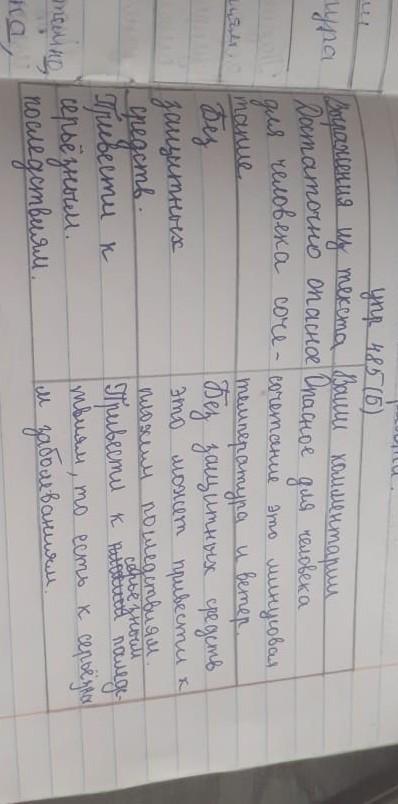 упр 485(Б)
Выражения из текста Ваши комментарии
Достаточно опасное Опасное для человека
для человека соче- сочетание это минусовая
тание. температура и ветер.
Без Без защитных средств
защитных это может привести к
средств. плохим последствиям.
серьезным
Привести к Привести к послед-
серьёзным. твиям, то есть к серьёзны
последствиям. м заболеваниям.